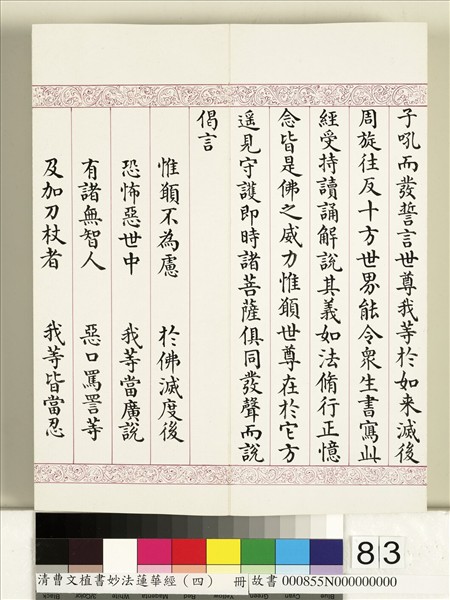 子吼而發誓言世尊我等於如来滅後
周旋往反十方世界能令衆生書寫此
經受持讀誦解說其義如法脩行正憶
念皆是佛之威力惟願世尊在於它方
遥見守護即時諸菩薩俱同發聲而說
偈言
惟願不為慮 於佛滅度後
恐怖惡世中 我等當廣說
有諸無智人 惡口罵詈等
及加刀杖者 我等皆當忍
83
清曹文植書妙法蓮華經(四) 冊 故書 000855N000000000